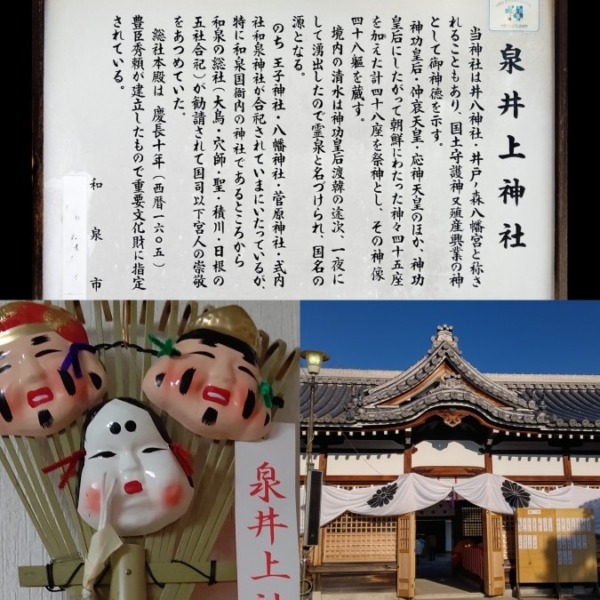 泉井上神社
当神社は井八神社・井戸ノ森八幡宮と称さ
れることもあり、国土守護神又殖産興業の神
として御神徳を示す。
神功皇后・仲哀天皇・応神天皇のほか、神功
皇后にしたがって朝鮮にわたった神々四十五座
を加えた計四十八座を祭神とし、その神像
四十八躯を蔵す。
境内の清水は神功皇后渡韓の途次、一夜に
して湧出したので霊泉と名づけられ、国名の
源となる。
のち王子神社・八幡神社・菅原神社・式内
社和泉神社が合祀されていまにいたっているが、
特に和泉国衙内の神社であるところから
和泉の総社(大鳥・穴師・聖・積川・日根の
五社合祀)が勧請されて国司以下宮人の崇敬
をあつめていた。
総社本殿は慶長十年(西暦一六〇五)
豊臣秀頼が建立したもので重要文化財に指定
されている。
和泉市
泉井上神